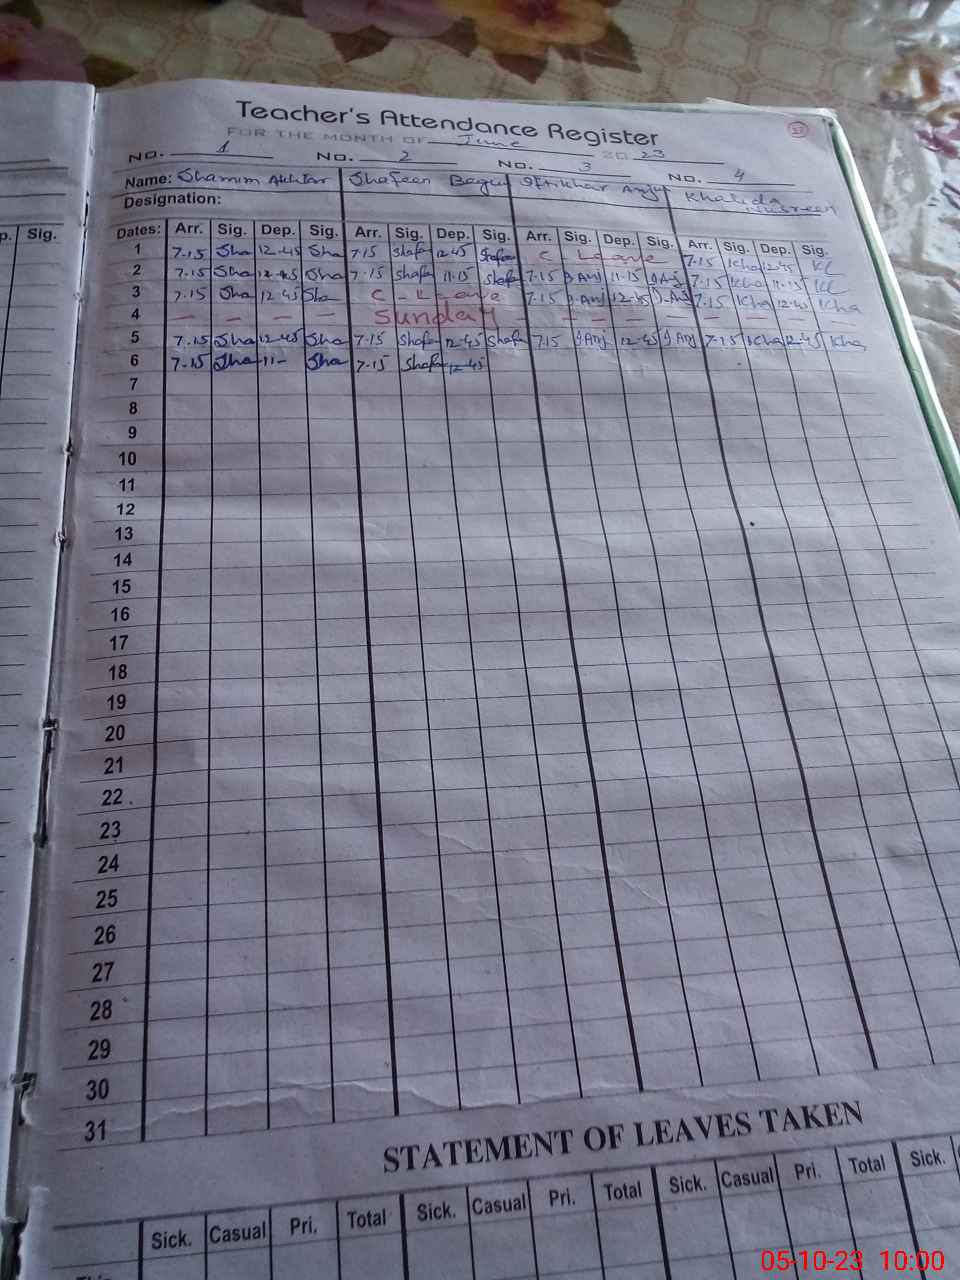 Teacher's Attendance Register
FOR THE MONTH OF June 20 23
No. 1 No. 2 No. 3 No. 4
Name: Shamim Akhtar Shafeen Begum Iftikhar Anjum Khalida Nusreen
Designation:
p. Sig.
Dates: Arr. Sig. Dep. Sig. Arr. Sig. Dep. Sig. Arr. Sig. Dep. Sig. Arr. Sig. Dep. Sig.
1 7.15 Sha 12-45 Sha 7.15 Shafe 12.45 Shafee C - Leave 7.15 Kha 12.45
2 7.15 Sha 12-45 Sha 7.15 Shafe 11.15 Shafe 7.15 I-Anj 11.15 I-Anj 7.15 Kha 11.15
3 7.15 Sha 12.45 Sha C - Leave 7.15 I-Anj 12.45 I-Anj 7.15 Kha 12.45 Kha
4 - - - - Sunday - - - - - - - -
5 7.15 Sha 12.45 Sha 7.15 Shafe 12.45 Shafe 7.15 I Anj 12.45 I Anj 7.15 Kha 12.45 Kha
6 7.15 Sha 11- Sha 7.15 Shafe 12.45
7
8
9
10
11
12
13
14
15
16
17
18
19
20
21
22
23
24
25
26
27
28
29
30
31
STATEMENT OF LEAVES TAKEN
Sick. Casual Pri. Total Sick. Casual Pri. Total Sick. Casual Pri. Total Sick.
05-10-23 10:00